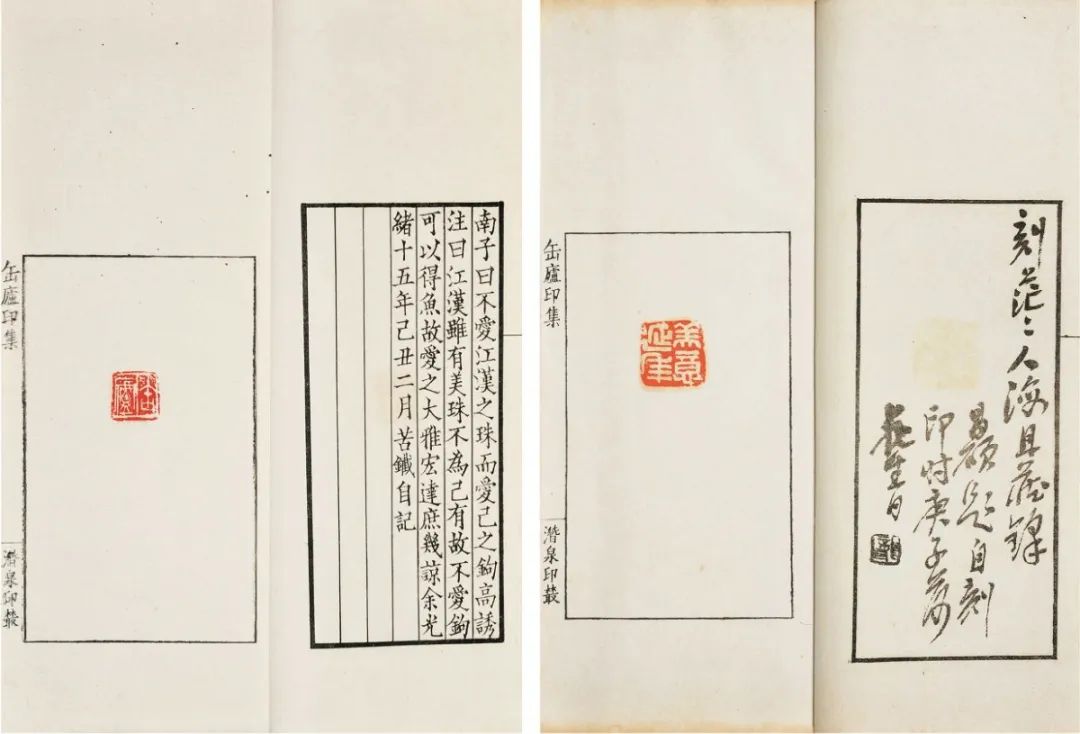 南子曰不愛江漢之珠而愛己之鉤高誘
注曰江漢雖有美珠不為己有故不愛鉤
可以得魚故愛之大雅宏達庶幾諒余光
緒十五年己丑二月苦鐵自記
缶廬印集
潛泉印叢
刻茫〻人海且藏鋒
昌碩題自刻
印時庚子荷
花生日
美意
延年
缶廬印集
潛泉印叢